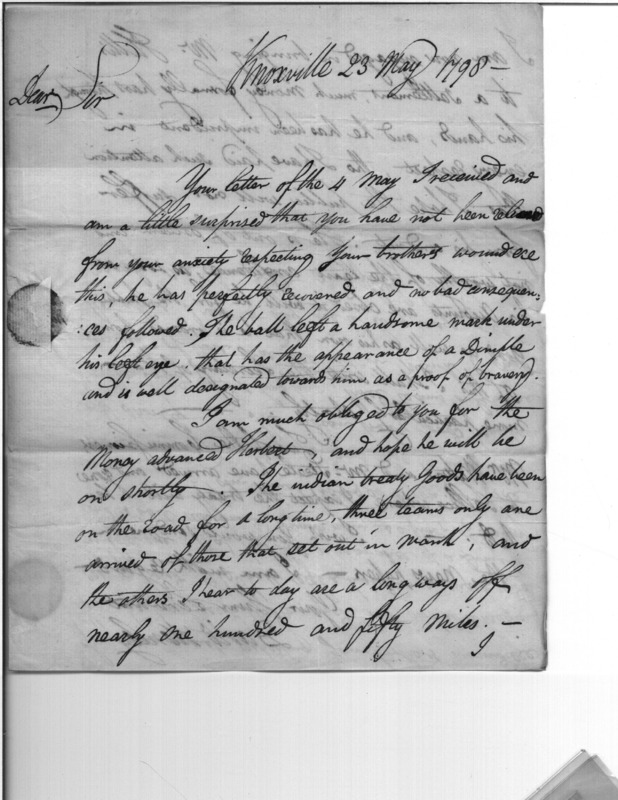 Knoxville 23 May 1798 —
Dear Sir
Your letter of the 4 May I received and
am a little surprised that you have not been relieved
from your anxiety respecting your brothers wound ere
this, he has perfectly recovered and no bad consequen:
:ces followed. The ball left a handsome mark under
his left eye, that has the appearance of a Dimple
and is well designated towards him as a proof of bravery.
I am much obliged to you for the
Money advanced , and hope he will be
on shortly The indian treaty Goods have been
on the road for a long time, three teams only are
arrived of those that set out in March; and
the others I hear to day are a long ways off
nearly one hundred and fifty miles. —